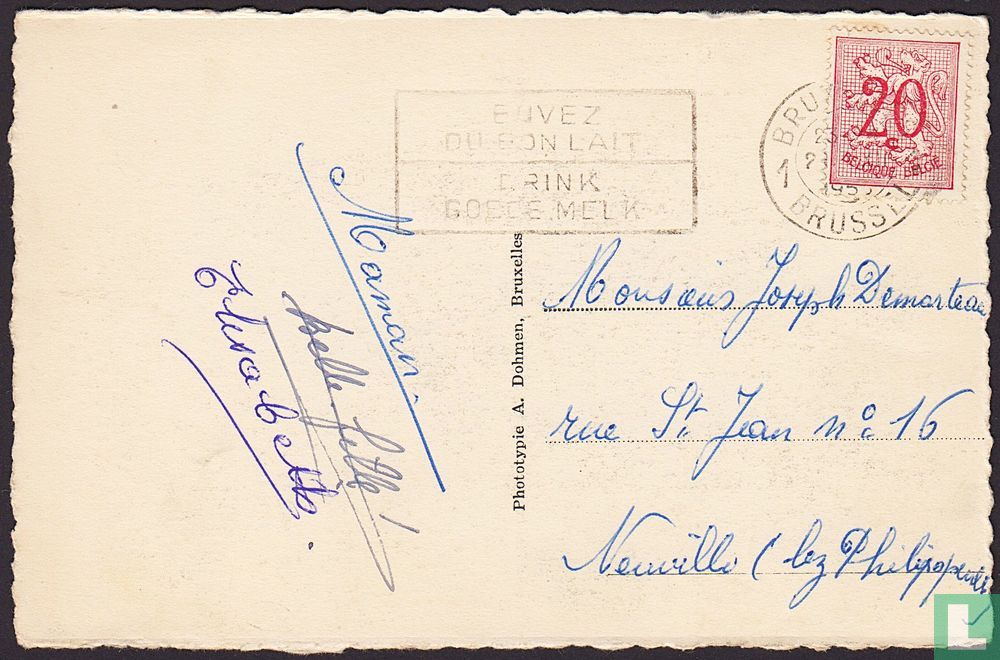 BUVEZ
DU BON LAIT
DRINK
GOEDE MELK
1 BRUSSEL
20
c
BELGIQUE BELGIE
Maman.
belle-fille!
Elisabeth.
Phototypie A. Dohmen, Bruxelles
Monsieur Joseph Demarteau
rue St Jean nº 16
Neuville (lez Philippeville
L